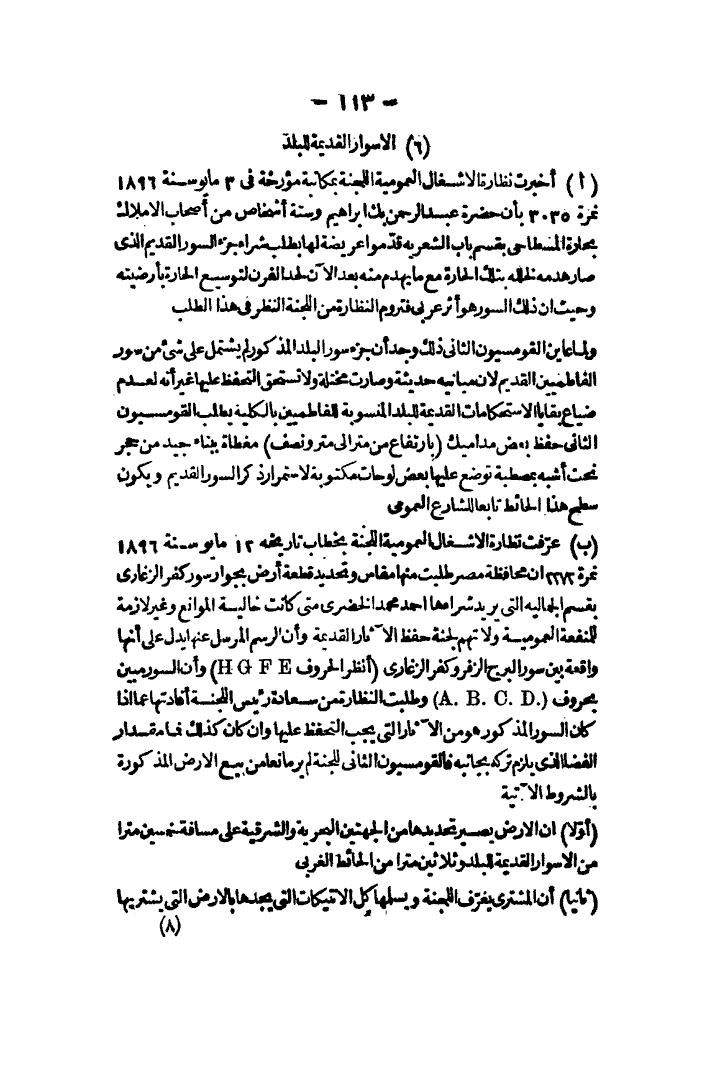 – ١١٣ –
(٦) الاسوار القديمة للبلد
(أ) أخبرت نظارة الاشغال العمومية اللجنة بمكاتبة مؤرخة فى ٣ مايو سنة ١٨٩٦
نمرة ٣٠٣٥ بأن حضرة عبد الرحمن بك ابراهيم وستة أشخاص من أصحاب الاملاك
بحارة المسطاحى بقسم باب الشعريه قدّموا عريضة لها بطلب شراء جزء السور القديم الذى
صار هدمه للخلله بتلك الحارة مع ما يهدم منه بعد الآن لحد الفرن لتوسيع الحارة بأرضيته
وحيث ان ذلك السور هو أثر عربى فتروم النظارة من اللجنة النظر فى هذا الطلب
ولما عاين القومسيون الثانى ذلك وجد أن جزء سور البلد المذكور لم يشتمل على شئ من سور
الفاطميين القديم لان مبانيه حديثة وصارت مختلة ولا تستحق التحفظ عليها غير أنه لعدم
ضياع بقايا الاستحكامات القديمة للبلد المنسوبة للفاطميين بالكلية يطلب القومسيون
الثانى حفظ بعض مداميك (بارتفاع من متر الى متر ونصف) مغطاة ببناء جيد من حجر
نحت أشبه بمصطبة توضع عليها بعض لوحات مكتوبة لاستمرار ذكر السور القديم ويكون
سطح هذا الحائط تابعا للشارع العمومى
(ب) عرّفت نظارة الاشغال العمومية اللجنة بخطاب تاريخه ١٢ مايو سنة ١٨٩٦
نمرة ٢٢٧٢ ان محافظة مصر طلبت منها مقاس وتحديد قطعة أرض بجوار سور كفر الزغارى
بقسم الجماليه التى يريد شراءها احمد محمد الخضرى متى كانت خالية الموانع وغير لازمة
للمنفعة العمومية ولا تهم لجنة حفظ الآثار القديمة وأن الرسم المرسل عنها يدل على أنها
واقعة بين سور البرج الزفر وكفر الزغارى (أنظر الحروف H G F E) وأن السور مبين
بحروف (A. B. C. D.) وطلبت النظارة من سعادة رئيس اللجنة أفادتها عما اذا
كان السور المذكور هو من الآثار التى يجب التحفظ عليها وان كان كذلك فما مقدار
الفضا الذى يلزم تركه بجانبه فالقومسيون الثانى للجنة لم ير مانعا من بيع الارض المذكورة
بالشروط الآتية
(أوّلا) ان الارض يصير تحديدها من الجهتين البحرية والشرقية على مسافة خمسين مترا
من الاسوار القديمة للبلد وثلاثين مترا من الحائط الغربى
(ثانيا) أن المشترى يعرّف اللجنة ويسلمها كل الانتيكات التى يجدها بالارض التى يشتريها
(٨)